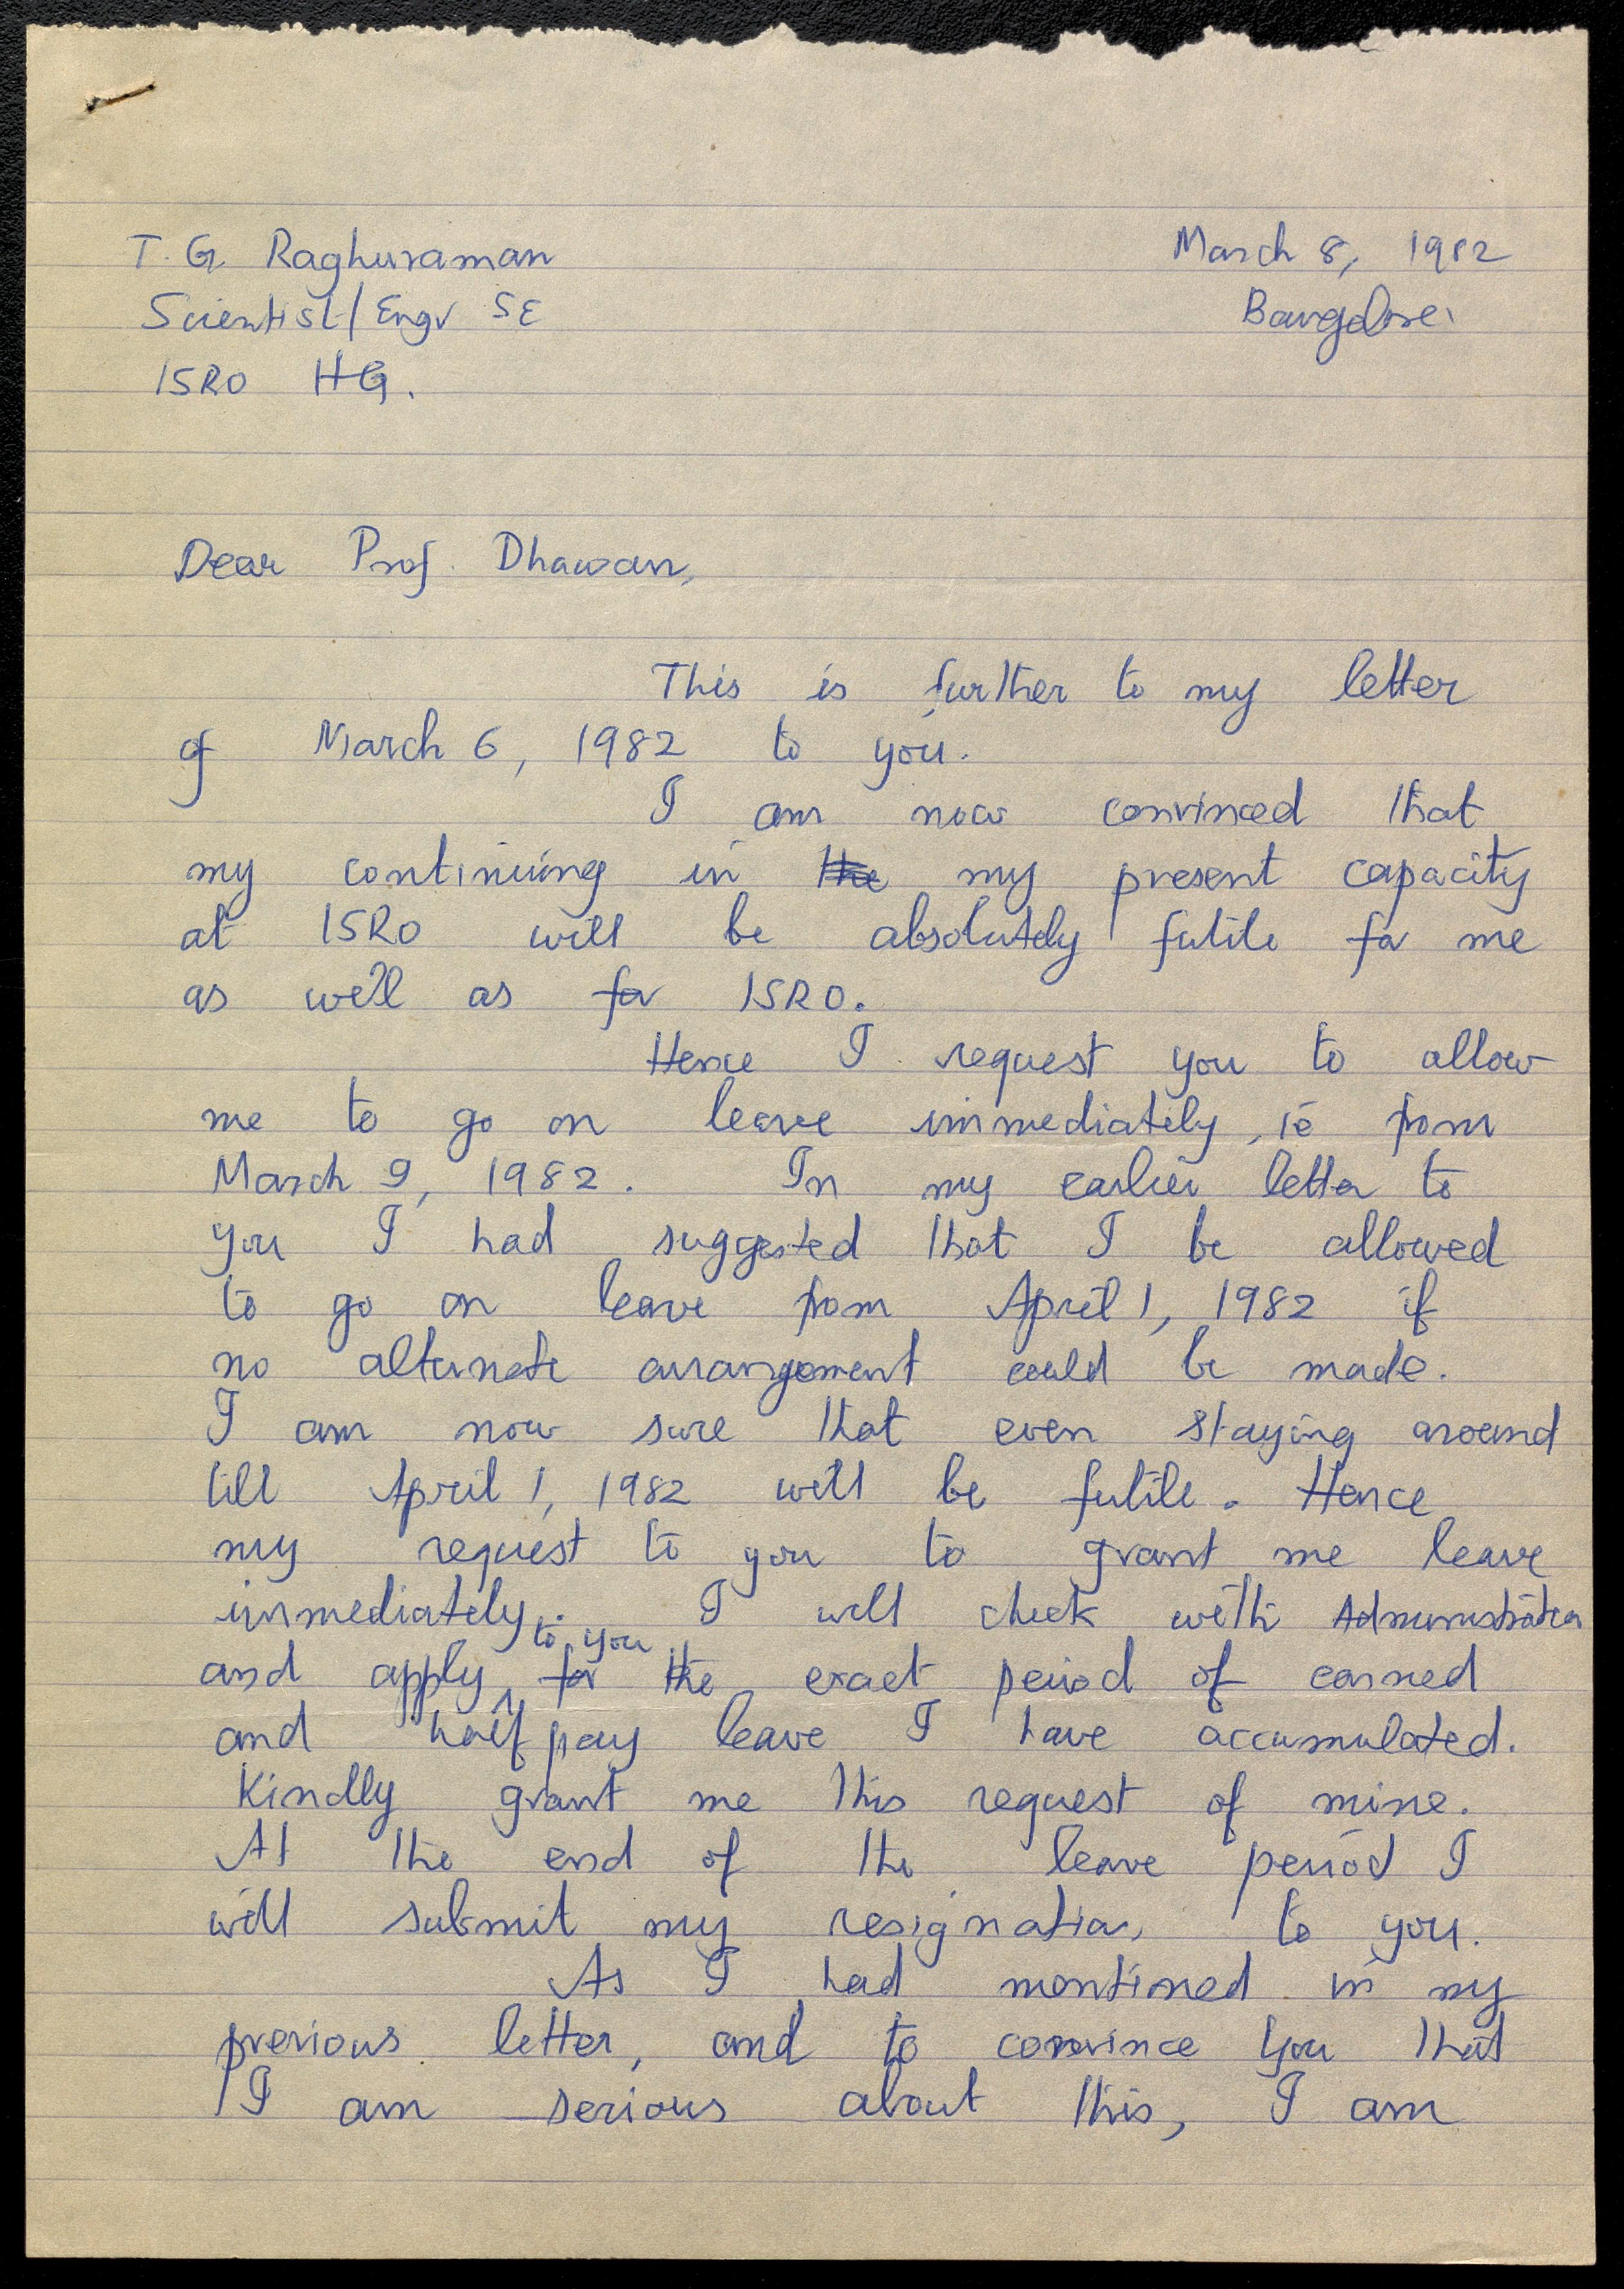 T. G. Raghuraman
March 8, 1982
Scientist/Engr SE
Bangalore.
ISRO HQ.
Dear Prof. Dhawan,
This is further to my letter
of March 6, 1982 to you.
I am now convinced that
my continuing in the my present capacity
at ISRO will be absolutely futile for me
as well as for ISRO.
Hence I request you to allow
me to go on leave immediately, ie from
March 9, 1982. In my earlier letter to
you I had suggested that I be allowed
to go on leave from April 1, 1982 if
no alternate arrangement could be made.
I am now sure that even staying around
till April 1, 1982 will be futile. Hence
my request to you to grant me leave
immediately. I will check with Administration
to you
and apply for the exact period of earned
and half pay leave I have accumulated.
Kindly grant me this request of mine.
At the end of the leave period I
will submit my resignation to you.
As I had mentioned in my
previous letter, and to convince you that
I am serious about this, I am